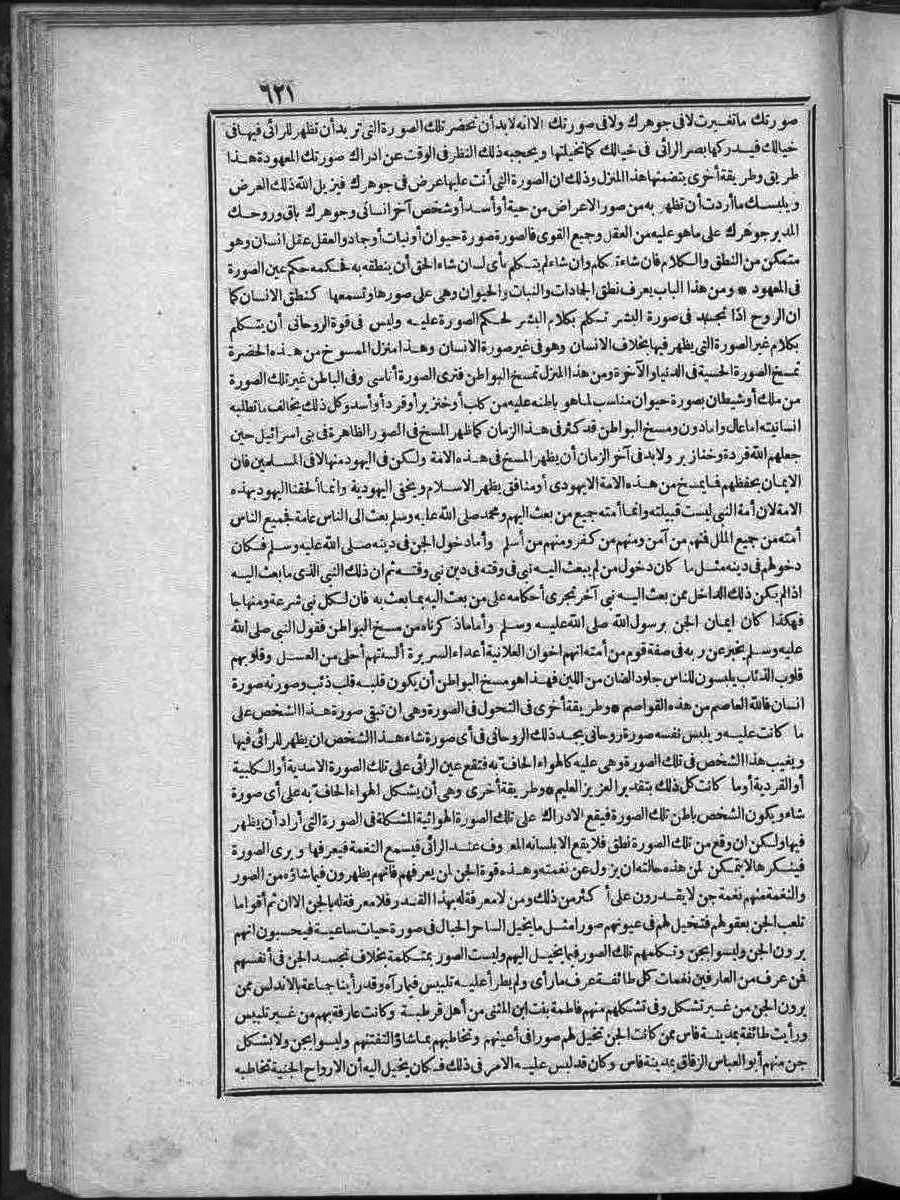 ٦٢١
صورتك ما تغيرت لا فى جوهرك ولا فى صورتك الا انه لا بد أن تحضر تلك الصورة التى تريد أن تظهر للرائى فيها فى
خيالك فيدركها بصر الرائى فى خيالك كما تخيلتها ويحجبه ذلك النظر فى الوقت عن ادراك صورتك المعهودة هذا
طريق وطريقة أخرى يتضمنها هذا المنزل وذلك ان الصورة التى أنت عليها عرض فى جوهرك فيزيل الله ذلك العرض
ويلبسك ما أردت أن تظهر به من صور الاعراض من حية أو أسد أو شخص آخر انسانى وجوهرك باق وروحك
المدبر جوهرك على ما هو عليه من العقل وجميع القوى فالصورة صورة حيوان أو نبات أو جاد والعقل عقل انسان وهو
متمكن من النطق والكلام فان شاء تكلم وان شاء لم يتكلم بأى لسان شاء الحق أن ينطقه به فحكمه حكم عين الصورة
فى المعهود * ومن هذا الباب يعرف نطق الجمادات والنبات والحيوان وهى على صورها وتسمعها كنطق الانسان كما
ان الروح اذا تجسد فى صورة البشر تكلم بكلام البشر لحكم الصورة عليه وليس فى قوة الروحانى أن يتكلم
بكلام غير الصورة التى يظهر فيها بخلاف الانسان وهو فى غير صورة الانسان وهذا منزل المسوخ من هذه الحضرة
تمسخ الصورة الحسية فى الدنيا والآخرة ومن هذا المنزل تمسخ البواطن فترى الصورة أناسى وفى الباطن غير تلك الصورة
من ملك أو شيطان بصورة حيوان مناسب لما هو باطنه عليه من كلب أو خنزير أو قرد أو أسد وكل ذلك يخالف ما تطلبه
انسانيته اما عال واما دون ومسخ البواطن قد كثر فى هذا الزمان كما ظهر المسخ فى الصور الظاهرة فى بنى اسرائيل حين
جعلهم الله قردة وخنازير ولا بد فى آخر الزمان أن يظهر المسخ فى هذه الامة ولكن فى اليهود منها لا فى المسلمين فان
الايمان يحفظهم فما يمسخ من هذه الامة الا يهودى أو منافق يظهر الاسلام ويخفى اليهودية وانما ألحقنا اليهود بهذه
الامة لان أمة النبى ليست قبيلته وانما أمته جميع من بعث اليهم ومحمد صلى الله عليه وسلم بعث الى الناس عامة فجميع الناس
أمته من جميع الملل فنهم من آمن ومنهم من كفر ومنهم من أسلم وأما دخول الجن فى دينه صلى الله عليه وسلم فكان
دخولهم فى دينه مثل ما كان دخول من لم يبعث اليه نبى فى وقته فى دين نبى وقته ثم ان ذلك النبى الذى ما بعث اليه
اذا لم يكن ذلك الداخل ممن بعث اليه نبى آخر تجرى أحكامه على من بعث اليه بما بعث به فان لكل نبى شرعة ومنهاجا
فهكذا كان ايمان الجن برسول الله صلى الله عليه وسلم وأما ما ذكرناه من مسخ البواطن فقول النبى صلى الله
عليه وسلم يخبر عن ربه فى صفة قوم من أمته انهم اخوان العلانية أعداء السريرة ألسنتهم أحلى من العسل وقلوبهم
قلوب الذئاب يلبسون للناس جلود الضان من اللين فهذا هو مسخ البواطن أن يكون قلبه قلب ذئب وصورته صورة
انسان فالله العاصم من هذه القواصم * وطريقة أخرى فى التحول فى الصورة وهى ان تبقى صورة هذا الشخص على
ما كانت عليه ويلبس نفسه صورة روحانى يجسد ذلك الروحانى فى أى صورة شاء هذا الشخص ان يظهر للرائى فيها
ويغيب هذا الشخص فى تلك الصورة وهى عليه كالهواء الحاف به فتقع عين الرائى على تلك الصورة الاسدية أو الكلبية
أو القردية أو ما كانت كل ذلك بتقدير العزيز العليم * وطريقة أخرى وهى أن يشكل الهواء الحاف به على أى صورة
شاء ويكون الشخص باطن تلك الصورة فيقع الادراك على تلك الصورة الهوائية المشكلة فى الصورة التى أراد أن يظهر
فيها ولكن ان وقع من تلك الصورة نطق فلا يقع الا بلسانه المعروف عند الرائى فيسمع النغمة فيعرفها ويرى الصورة
فينكرها لا يتمكن لمن هذه حالته ان يزول عن نغمته وهذه قوة الجن لمن يعرفهم فانهم يظهرون فيما شاؤه من الصور
والنغمة منهم نغمة جن لا يقدرون على أكثر من ذلك ومن لا معرفة له بهذا القدر فلا معرفة له بالجن الا ان ثم أقواما
تلعب الجن بعقولهم فتخيل لهم فى عيونهم صورا مثل ما يخيل الساحر الحبال فى صورة حيات ساعية فيحسبون انهم
يرون الجن وليسوا بجن وتكلمهم تلك الصور فيما يخيل اليهم وليست الصور بمتكلمة بخلاف تجسد الجن فى أنفسهم
فمن عرف من العارفين نغمات كل طائفة عرف ما رأى ولم يطرأ عليه تلبيس فيما رآه وقد رأينا جماعة بالاندلس ممن
يرون الجن من غير تشكل وفى تشكلهم منهم فاطمة بنت ابن المثنى من أهل قرطبة وكانت عارفة بهم من غير تلبيس
ورأيت طائفة بمدينة فاس ممن كانت الجن تخيل لهم صورا فى أعينهم وتخاطبهم بما شاؤا لتفتنهم وليسوا بجن ولا بشكل
جن منهم أبو العباس الزقاق بمدينة فاس وكان قد لبس عليه الامر فى ذلك فكان يخيل اليه أن الارواح الجنية تخاطبه